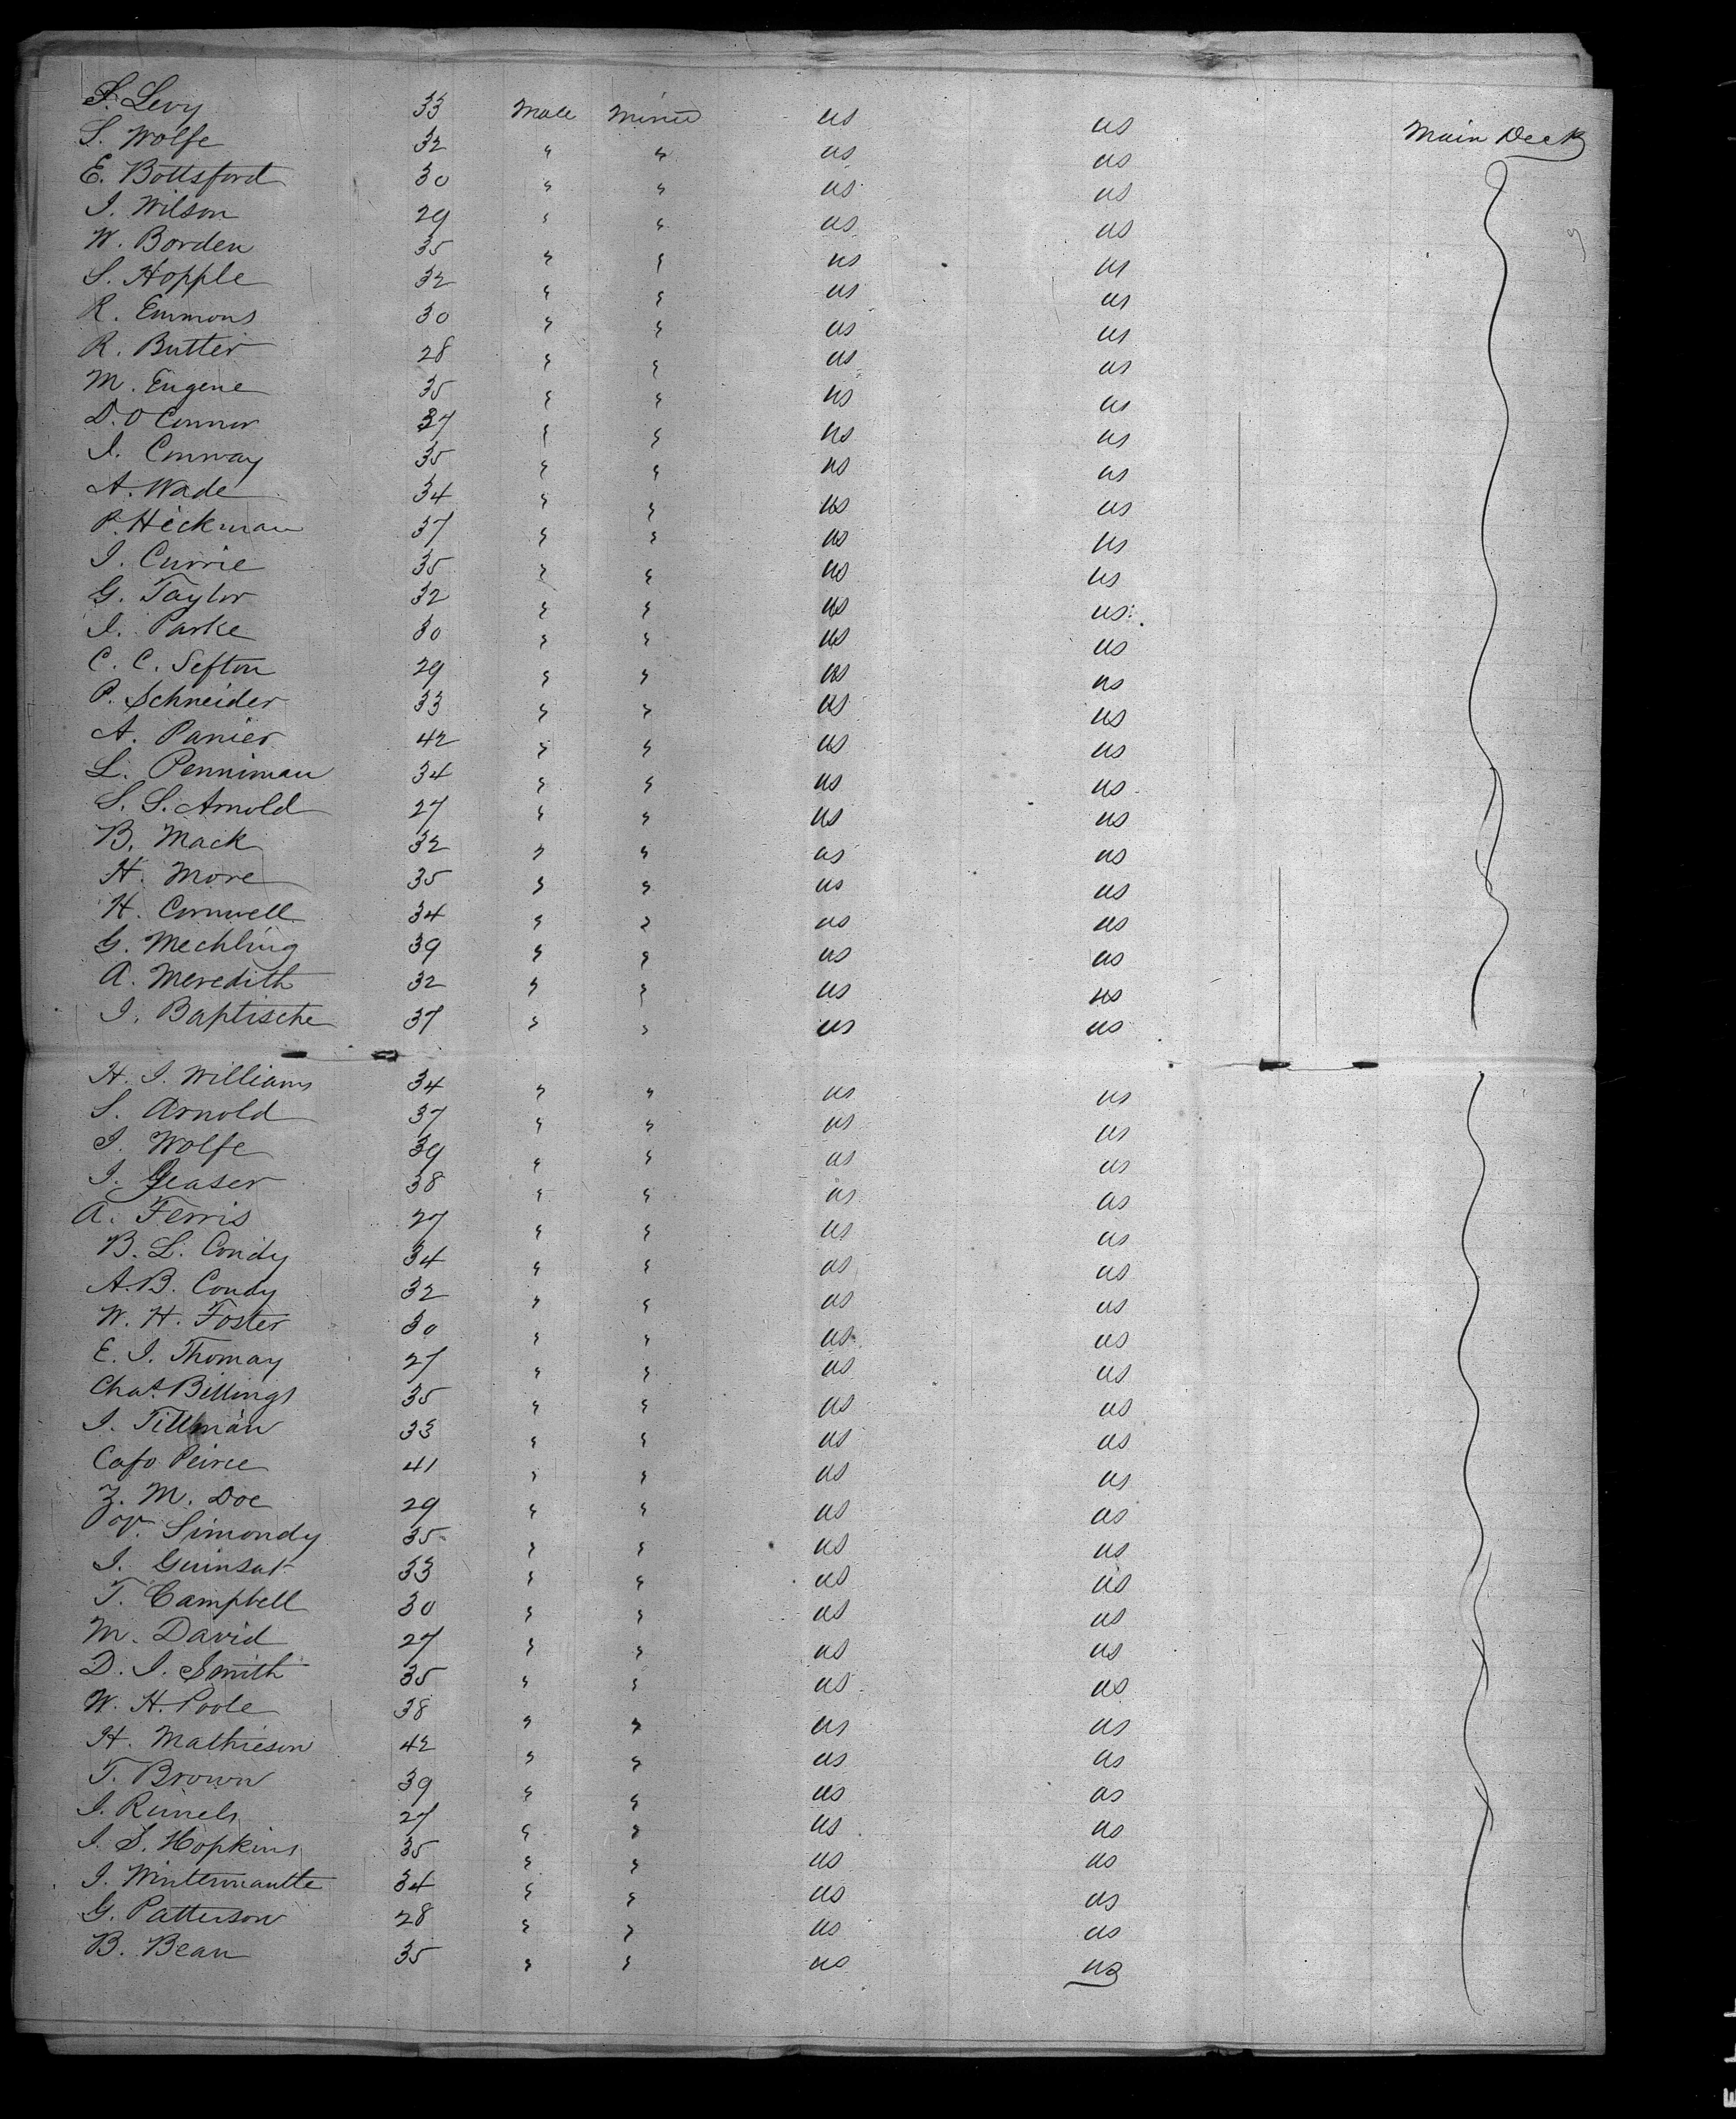 S. Levy 33 Male Miner US US Main Deck
S. Wolfe 32 " " US US
E. Bottsford 30 " " US US
J. Wilson 29 " " US US
W. Borden 35 " " US US
S. Hopple 32 " " US US
R. Emmons 30 " " US US
R. Butter 28 " " US US
M. Eugene 35 " " US US
D. O Connor 37 " " US US
J. Conway 35 " " US US
A. Wade 34 " " US US
P. Heckman 37 " " US US
J. Currie 35 " " US US
G. Taylor 32 " " US US
J. Parke 30 " " US US
C. C. Sefton 29 " " US US
P. Schneider 33 " " US US
A. Panier 42 " " US US
L. Penniman 34 " " US US
S. S. Arnold 27 " " US US
B. Mack 32 " " US US
H. More 35 " " US US
H. Cornwell 34 " " US US
G. Mechling 39 " " US US
A. Meredith 32 " " US US
J. Baptische 37 " " US US
H. J. Williams 34 " " US US
S. Arnold 37 " " US US
J. Wolfe 39 " " US US
J. 38 " " US US
A. Ferris 27 " " US US
B. L. Condy 34 " " US US
A. B. Condy 32 " " US US
W. H. Foster 30 " " US US
E. J. Thomas 27 " " US US
Chas. Billings 35 " " US US
J. Tillman 33 " " US US
Peirce 41 " " US US
Z. M. Doe 29 " " US US
V. Simonds 35 " " US US
J. 33 " " US US
T. Campbell 30 " " US US
M. David 27 " " US US
D. J. Smith 35 " " US US
W. H. Poole 38 " " US US
H. Mathieson 42 " " US US
T. Brown 39 " " US US
J. Runels 27 " " US US
J. S. Hopkins 35 " " US US
J. Wintermautte 34 " " US US
G. Patterson 28 " " US US
B. Bean 35 " " US US